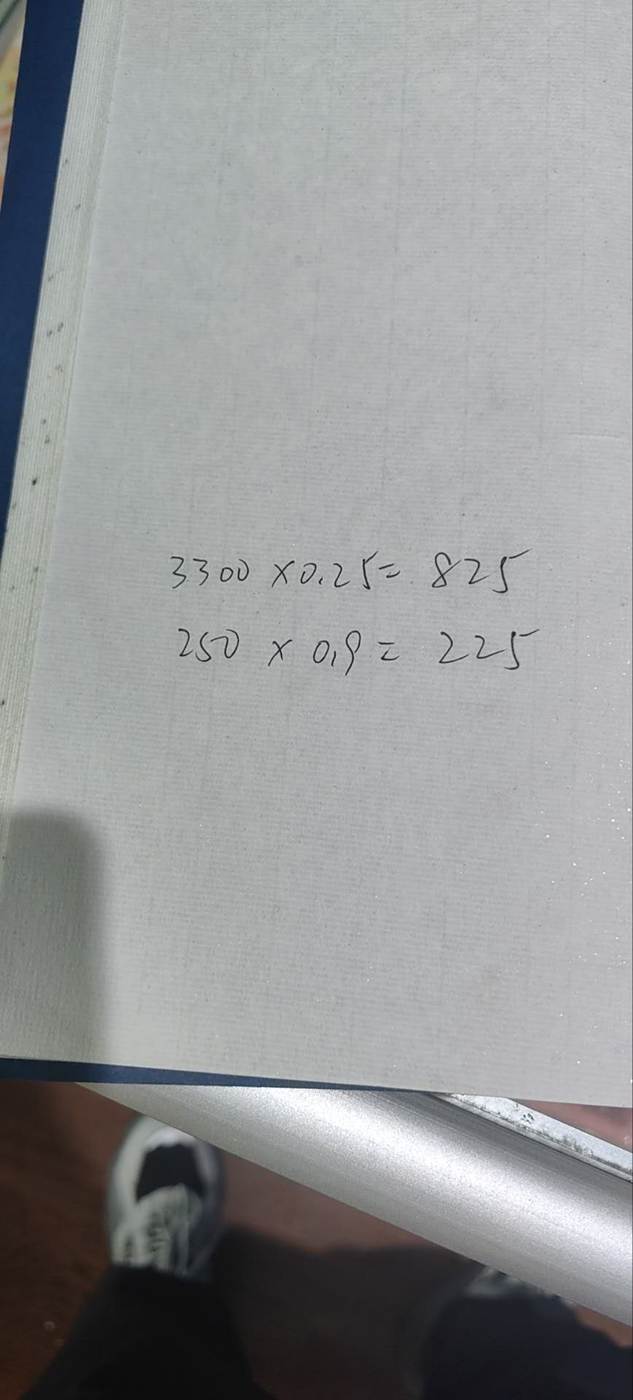 3300 × 0.25 = 825
250 × 0.9 = 225